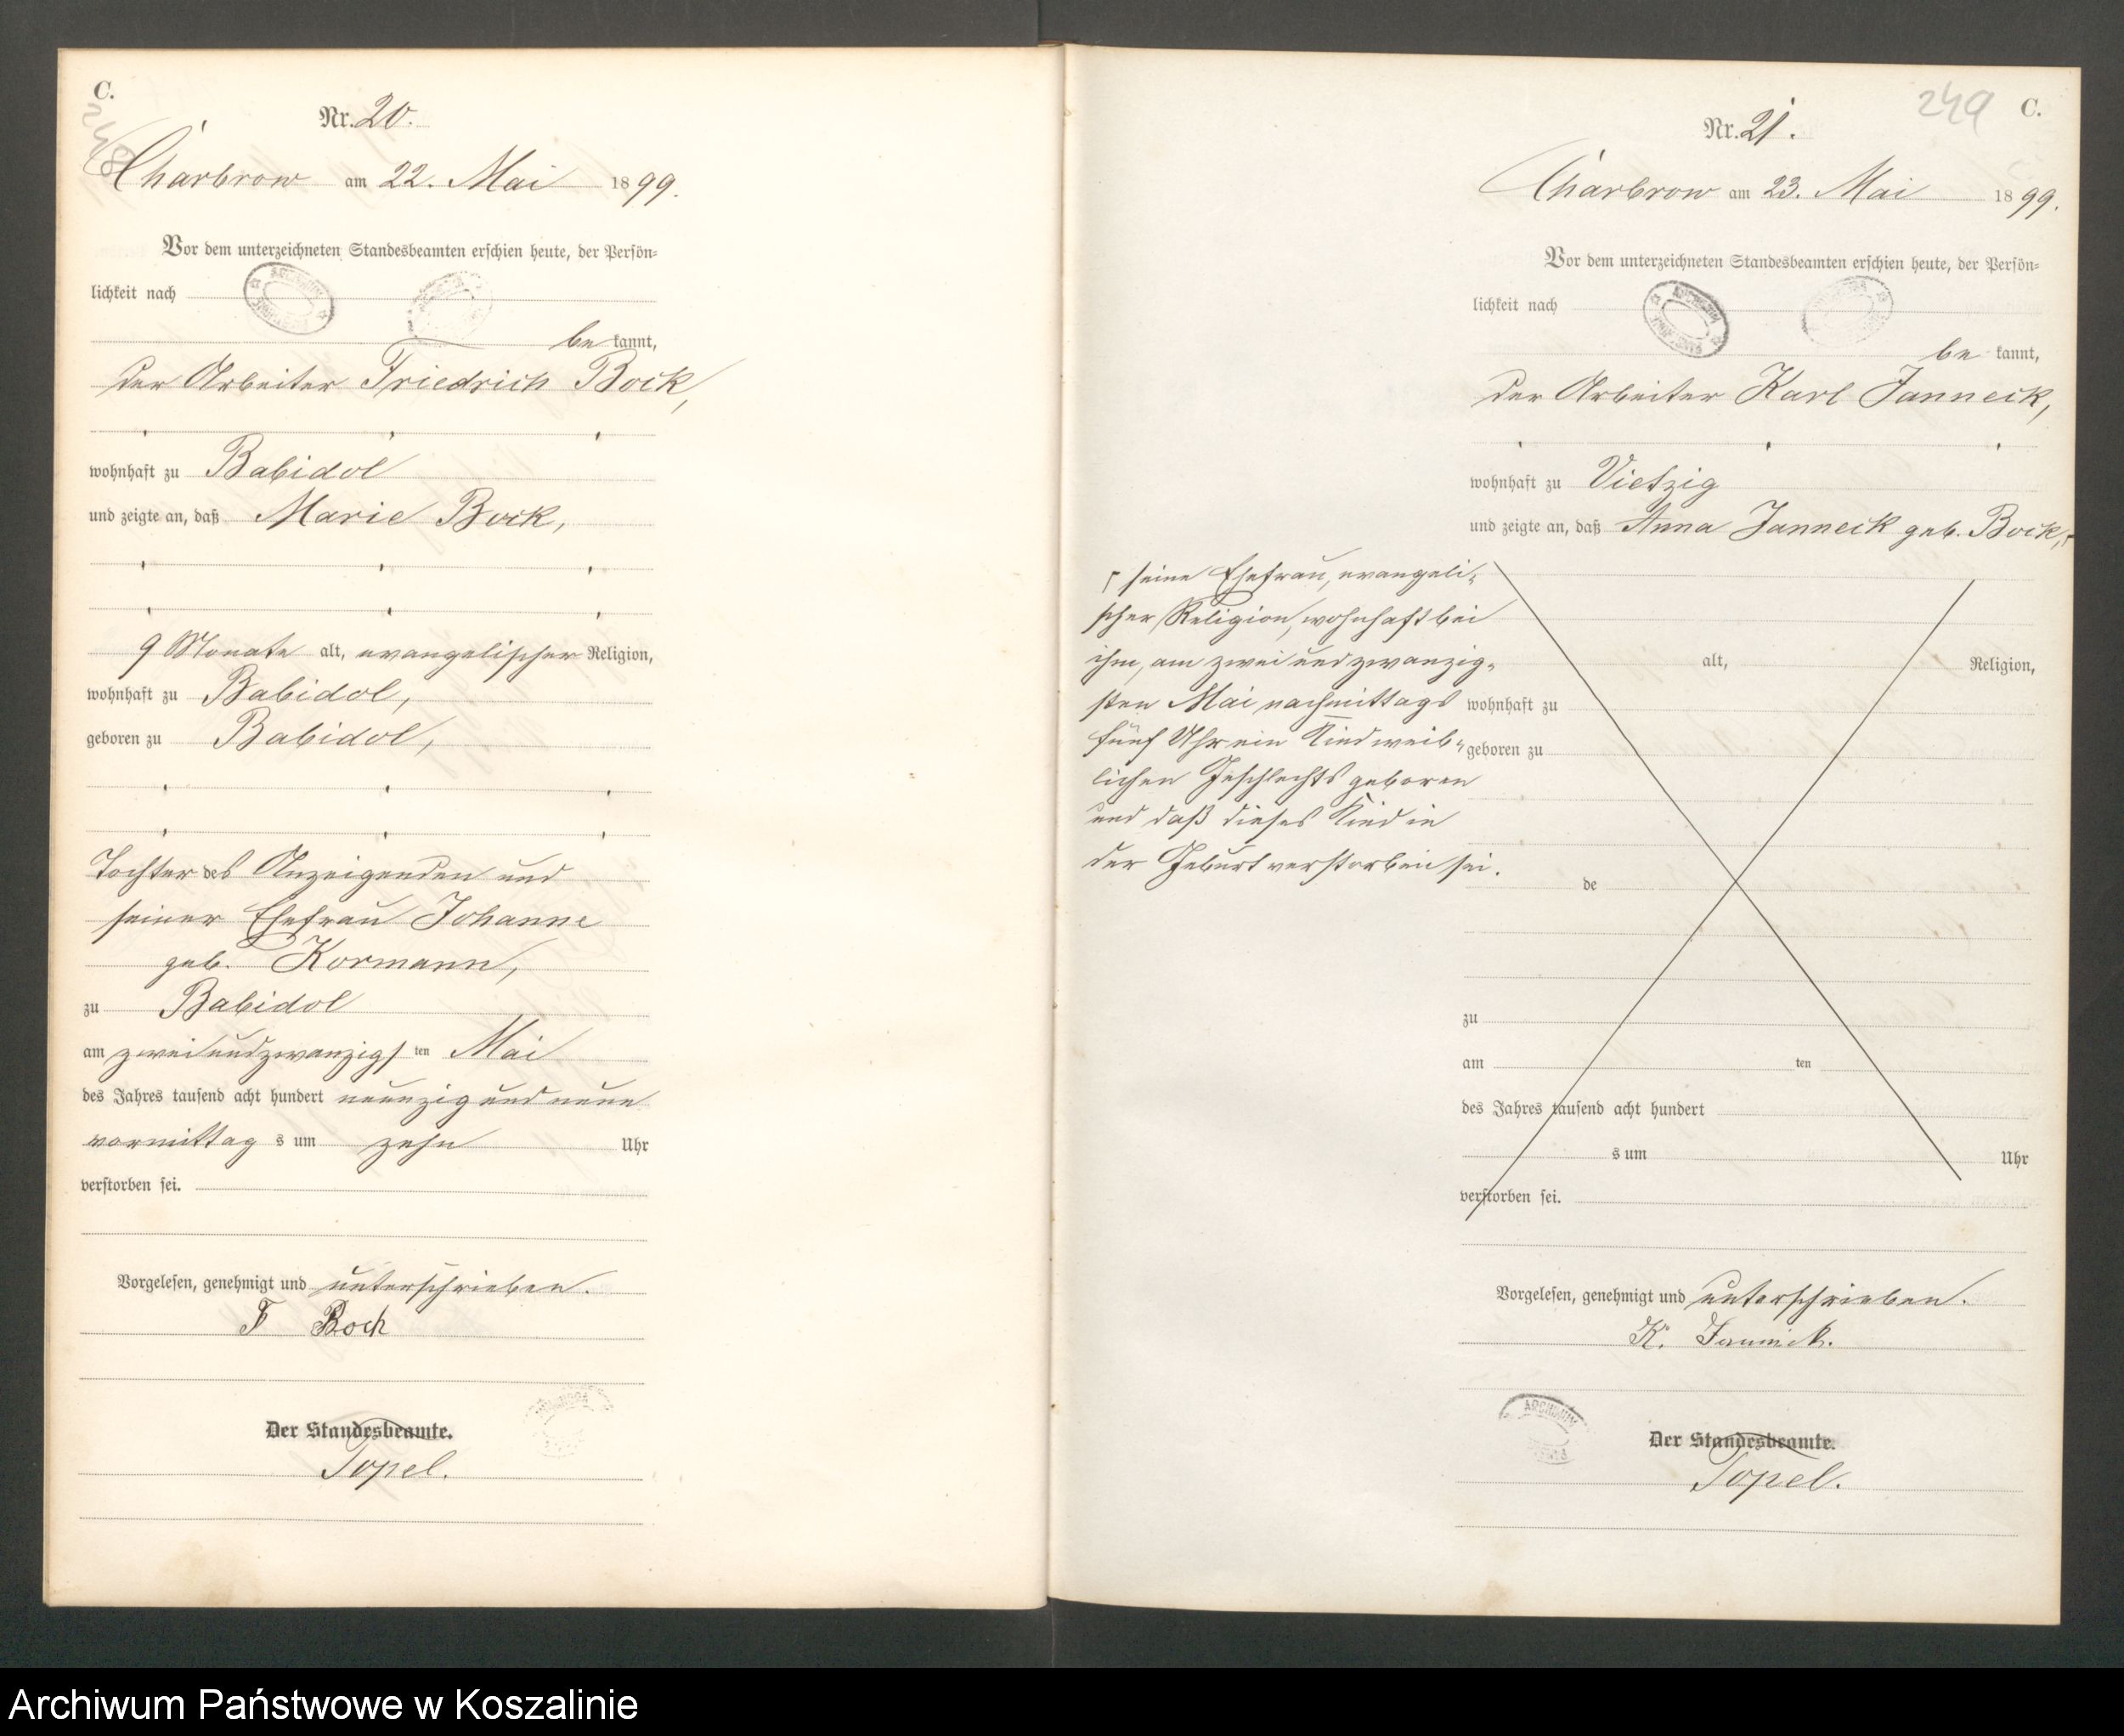 C.
248
Nr. 20.
Charbrow am 22. Mai 1899.
Vor dem unterzeichneten Standesbeamten erschien heute, der Persön=
lichkeit nach
be kannt,
der Arbeiter Friedrich Bock,
wohnhaft zu Babidol
und zeigte an, daß Marie Bock,
9 Monate alt, evangelischer Religion,
wohnhaft zu Babidol,
geboren zu Babidol,
Tochter des Anzeigenden und
seiner Ehefrau Johanne
geb. Kormann,
zu Babidol
am zweiundzwanzigsten Mai
des Jahres tausend acht hundert neunzig und neun
vormittags um zehn Uhr
verstorben sei.
Vorgelesen, genehmigt und unterschrieben.
F Bock
Der Standesbeamte.
Topel.
249 C.
Nr. 21.
Charbrow am 23. Mai 1899.
Vor dem unterzeichneten Standesbeamten erschien heute, der Persön=
lichkeit nach
be kannt,
der Arbeiter Karl Janneck,
wohnhaft zu Vietzig
und zeigte an, daß Anna Janneck geb. Bock, ┌
┌ seine Ehefrau, evangeli=
scher Religion, wohnhaft bei
ihm, am zwei und zwanzig=
sten Mai nachmittags
fünf Uhr ein Kind weib=
lichen Geschlechts geboren
und daß dieses Kind in
der Geburt verstorben sei.
alt, Religion,
wohnhaft zu
geboren zu
de
zu
am ten
des Jahres tausend acht hundert
s um Uhr
verstorben sei.
Vorgelesen, genehmigt und unterschrieben.
K. Jannick.
ARCHIWUM
Der Standesbeamte.
Topel.
Archiwum Państwowe w Koszalinie